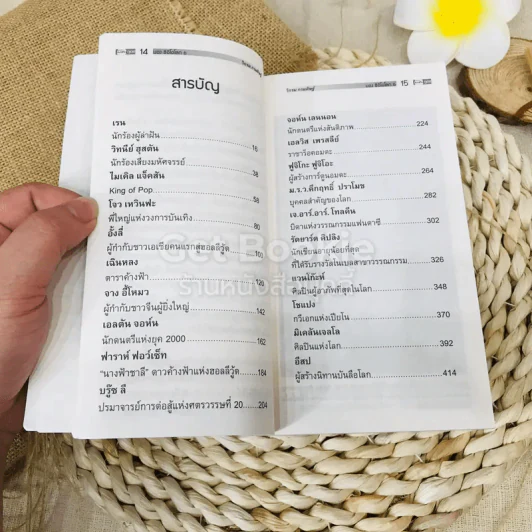 14
สารบัญ
เรน
นักร้องผู้ล่าฝัน
วิทนีย์ ฮุสตัน 16
นักร้องเสียงมหัศจรรย์
ไมเคิล แจ็คสัน 38
King of Pop 58
โจว เหวินฟะ
พี่ใหญ่แห่งวงการบันเทิง 80
อั้งลี่
ผู้กำกับชาวเอเชียคนแรกสู่ฮอลลีวู้ด 100
เฉินหลง
ดาราค้างฟ้า 120
จาง อี้โหมว
ผู้กำกับชาวจีนผู้ยิ่งใหญ่ 142
เอลตัน จอห์น
นักดนตรีแห่งยุค 2000 162
ฟาราห์ ฟอว์เซ็ท
"นางฟ้าชาลี" ดาวค้างฟ้าแห่งฮอลลีวู้ด 184
บรู๊ซ ลี
ปรมาจารย์การต่อสู้แห่งศตวรรษที่ 20 204
15
จอห์น เลนนอน
นักดนตรีแห่งสันติภาพ 224
เอลวิส เพรสลีย์
ราชาร็อคอมตะ 244
ฟูจิโกะ ฟูจิโอะ
ผู้สร้างการ์ตูนอมตะ 264
ม.ร.ว.คึกฤทธิ์ ปราโมช
บุคคลสำคัญของโลก 282
เจ.อาร์.อาร์. โทลคีน
บิดาแห่งวรรณกรรมแฟนตาซี
รัดยาร์ด คิปลิง
นักเขียนอายุน้อยที่สุด
ที่ได้รับรางวัลโนเบลสาขาวรรณกรรม 326
แวนโก๊ะห์
ศิลปินผู้อาภัพที่สุดในโลก 348
โชแปง
กวีเอกแห่งเปียโน 370
มิเคลันเจลโล
ศิลปินแห่งโลก 392
อีสป
ผู้สร้างนิทานบันลือโลก 414